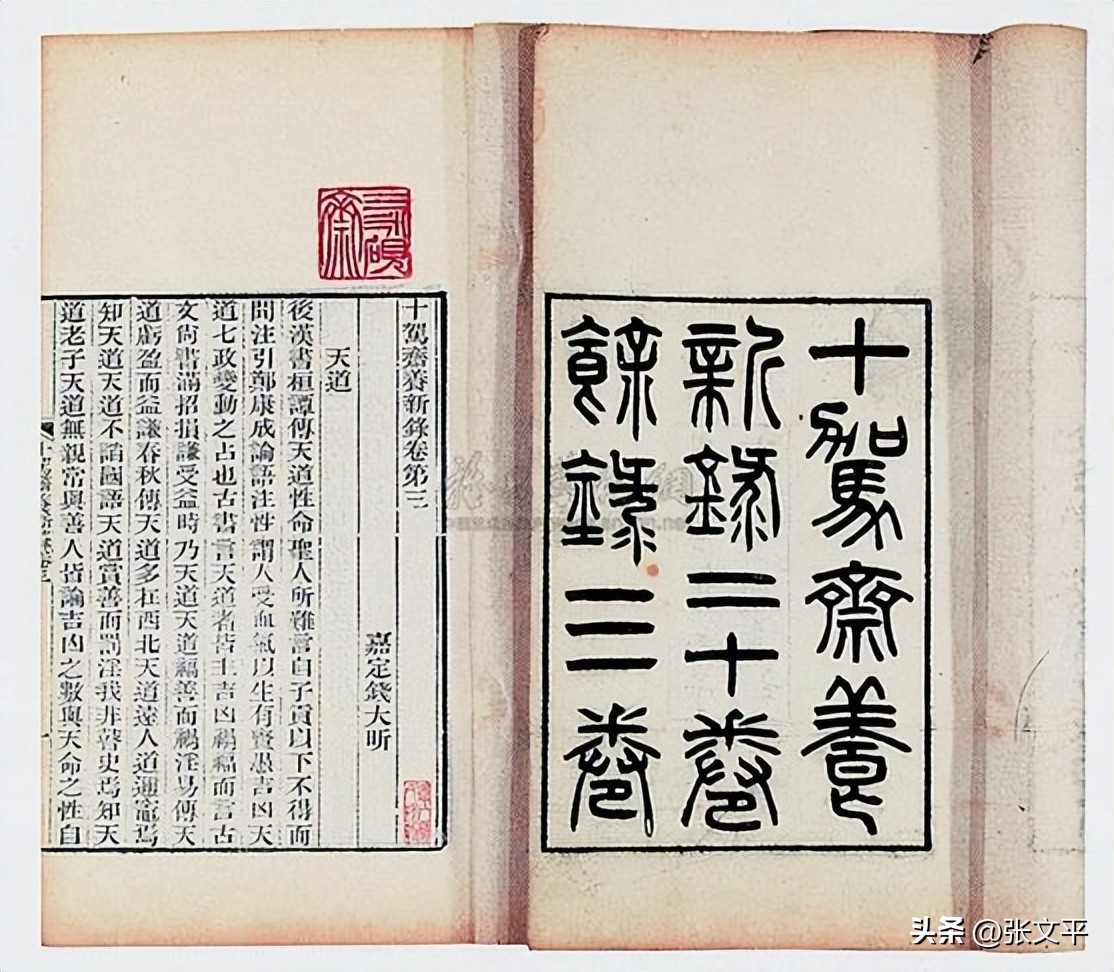 十駕齋養
新錄二十卷
餘錄三卷
十駕齋養新錄卷第三
嘉定錢大昕
天道
後漢書桓譚傳天道性命聖人所難言自子貢以下不得而
聞注引鄭康成論語注性謂人受血氣以生有賢愚吉凶天
道七政變動之占也古書言天道者皆主吉凶禍福而言古
文尚書滿招損謙受益時乃天道天道福善而禍淫易傳天
道虧盈而益謙春秋傳天道多在西北天道遠人道邇竈焉
知天道天道不謟國語天道賞善而罰淫我非瞽史焉知天
道老子天道無親常與善人皆論吉凶之數與天命之性自
头条 @张文平